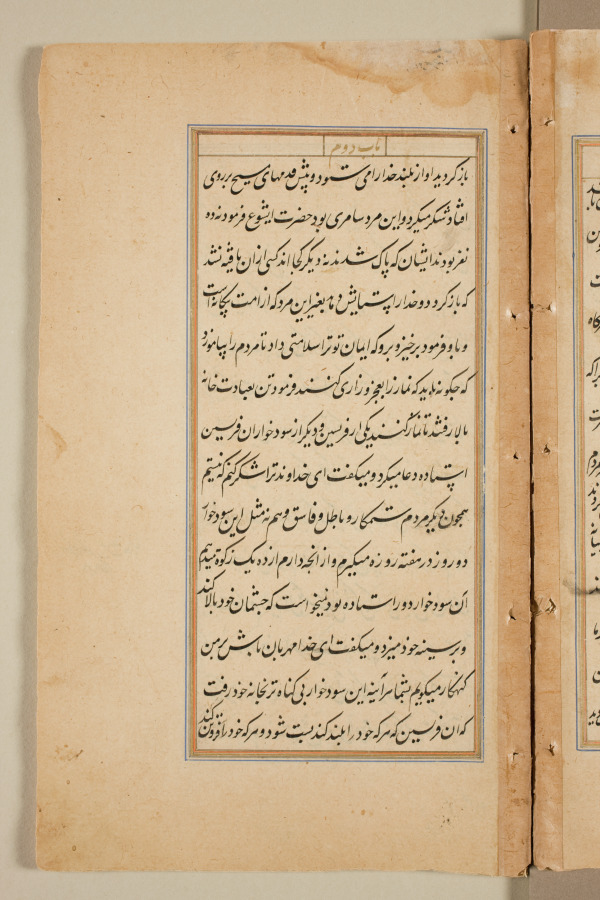 باب دوم
باز گردید اواز بلند خدا را می ستود و پیش قدمهای مسیح بر روی
افتاد شکر میکرد و این مرد سامری بود حضرت ایشوع فرمود نه ده
نفر بودند ایشان که پاک شدند نه دیگر کجا اند کسی ازان باقیه نشد
که باز کردد و خدا را ستایش دهد بغیر این مرد که از امت بیکانه است
و باو فرمود برخیز و برو که ایمان تو ترا سلامتی داد تا مردم را بیاموزد
که چکونه باید که نماز را بعجز و زاری کنند فرمود تن بعبادت خانه
بالا رفتند تا نماز کنند یکی از فریسین و دیکر از سود خواران فریسین
ایستاده دعا میکرد و میکفت ای خداوند ترا شکر کنم که نیستم
همچون دیکر مردم ستمکار و باطل و فاسق و هم نه مثل این سود خوار
دو روز در هفته روزه میکیرم و از انچه دارم از ده یک زکوة میدهم
آن سود خوار دور استاده بود نمیخواست که چشمان خود بالا کند
و بر سینه خود میزد و میکفت ای خدا مهربان باش بر من
کنهکار میکویم بشما هر آینه این سود خوار بی کناه تر بخانه خود رفت
که ان فریسین که هر که خود را بلند کند پست شود و هر که خود را فروتن کند